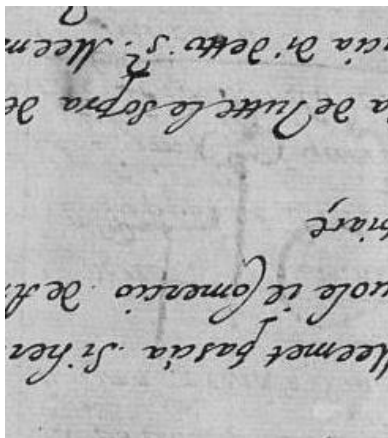 Meemet pascia. Si her
uole il Comercio de A
niare
a de Tutte le Sopra de
cia di detto S.r Meem